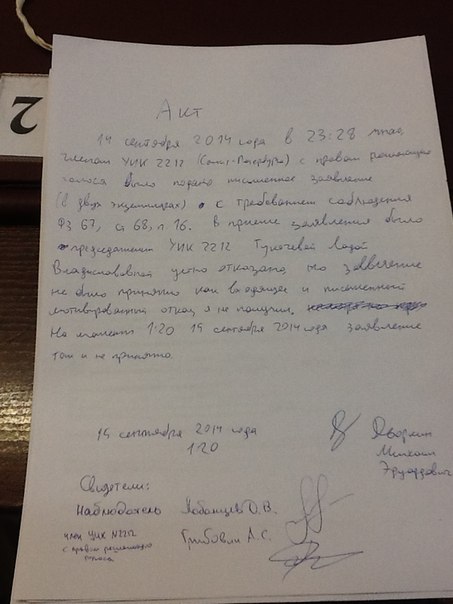 2
Акт
14 сентября 2014 года в 23:28 мною,
членом УИК 2212 (Санкт-Петербург) с правом решающего
голоса было подано письменное заявление
(в двух экземплярах) с требованием соблюдения
ФЗ 67, ст 68, п. 16. В приеме заявления было
председателем УИК 2212
Владиславовной устно отказано, но заявление
не было принято как входящее и письменный
мотивированный отказ я не получил,
На момент 1:20 15 сентября 2014 года заявление
так и не принято.
15 сентября 2014 года
1:20
Михаил
Эдуардович
Свидетели:
Наблюдатель Д.В.
член УИК №2212
с правом решающего
голоса
А.С.